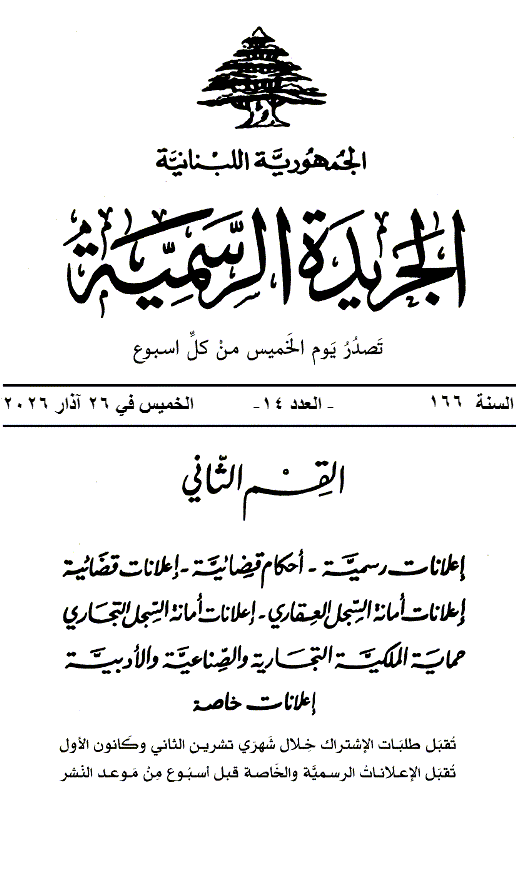 الجمهوريَّة اللبنانيَّة
الجَريدَة الرسَّميَّة
تَصدُرُ يَوم الخَميس منْ كلِّ اسبوع
السنة ١٦٦ - العدد ١٤- الخميس في ٢٦ آذار ٢٠٢٦
القِسْم الثَّاني
إعلانات رسميَّة - أحكام قضائيَّة - إعلانات قضائية
إعلانات أمانة السِّجل العقاري - إعلانات أمانة السِّجل التجاري
حماية الملكيَّة التجارية والصِّناعيَّة والأدبيَّة
إعلانات خاصة
تُقبَل طلبَات الإشتراك خِلال شَهرَي تشرين الثاني وكَانون الأول
تُقبَل الإعلاناتُ الرسميَّة والخَاصة قبل أسبُوع مِنْ مَوعد النَشر